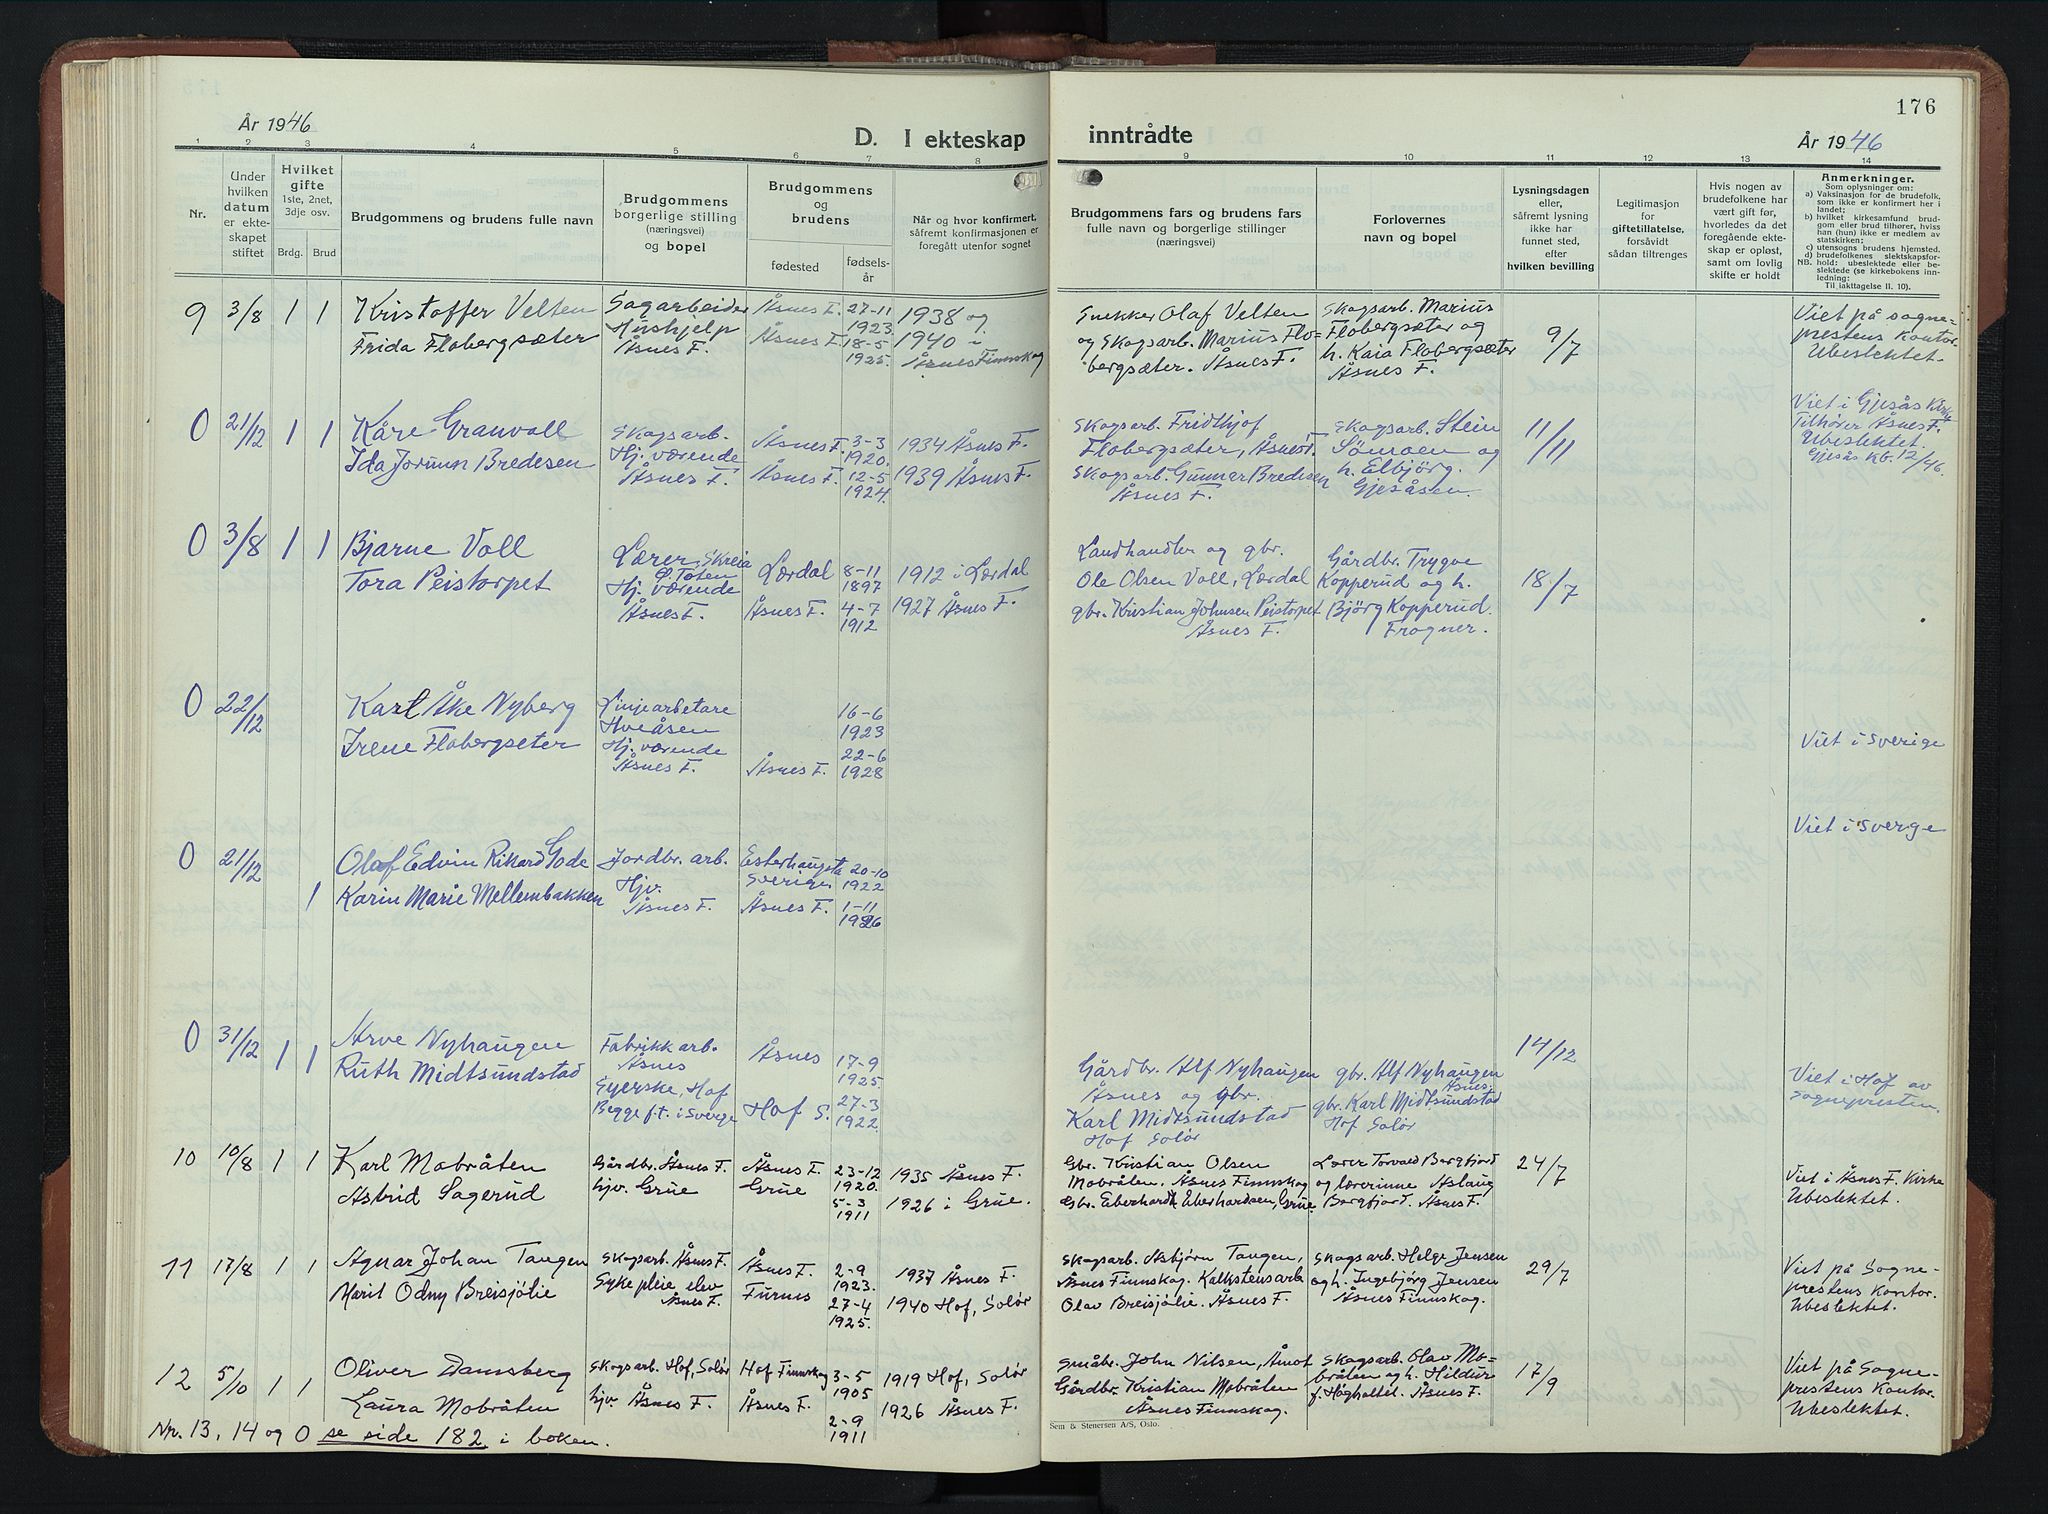 År 1946
D. I ekteskap
inntrådte
176
År 1946
1 2 3 4 5 6 7 8 9 10 11 12 13 14
Nr.
Under hvilken datum er ekteskapet stiftet
Hvilket gifte 1ste, 2net, 3dje osv.
Brdg. Brud
Brudgommens og brudens fulle navn
Brudgommens borgerlige stilling (næringsvei) og bopel
Brudgommens og brudens
fødested
fødselsår
Når og hvor konfirmert, såfremt konfirmasjonen er foregått utenfor sognet
Brudgommens fars og brudens fars fulle navn og borgerlige stillinger (næringsvei)
Forlovernes navn og bopel
Lysningsdagen eller, såfremt lysning ikke har funnet sted, efter hvilken bevilling
Legitimasjon for giftetillatelse, forsåvidt sådan tiltrenges
Hvis nogen av brudefolkene har vært gift før, hvorledes da det foregående ekteskap er opløst, samt om lovlig skifte er holdt
Anmerkninger.
Som oplysninger om:
a) Vaksinasjon for de brudefolk, som ikke er konfirmert her i landet;
b) hvilket kirkesamfund brudgom eller brud tilhører, hvis han (hun) ikke er medlem av statskirken;
c) utensogns brudens hjemsted.
d) brudefolkenes slektskapsforhold: ubeslektede eller beslektede (se kirkebokens innledning:
NB. Til iakttagelse II. 10).
9 3/8 1 1 Kristoffer Velten
Frida Flobergsæter
Sagarbeider
Hushjelp
Åsnes F.
Åsnes F. 27-11 1923
Åsnes F. 18-5 1925.
1938 og
1940 i
Åsnes Finnskog
Snekker Olaf Velten
og Skogsarb. Marius Flo=
bergsæter. Åsnes F.
Skogsarb. Marius
Flobergsæter og
h. Kaia Flobergsæter
Åsnes F.
9/7
Viet på sogne-
prestens Kontor.
Ubeslektet.
0 21/12 1 1 Kåre Granvoll
Ida Jorunn Bredesen
Skogsarb.
Hj. værende
Åsnes F.
Åsnes F. 3-3 1920.
Åsnes F. 12-5 1924.
1934 Åsnes F.
1939 Åsnes F.
Skogsarb. Fridthjof
Flobergsæter, Åsnes F.
Skogsarb. Gunnar Bredesen
Åsnes F.
Skogsarb. Stein
Sönroen og
h. Elbjörg.
Gjesåsen.
11/11
Viet i Gjesås Kirke
Tilhører Åsnes F.
Ubeslektet.
Gjesås KB. 12/46.
0 3/8 1 1 Bjarne Voll
Tora Peistorpet
Lærer, Skreia
Ø. Toten
Hj. værende
Åsnes F.
Lærdal 8-11 1897
Åsnes F. 4-7 1912
1912 i Lærdal
1927 Åsnes F.
Landhandler og gbr.
Ole Olsen Voll, Lærdal
gbr. Kristian Johnsen Peistorpet
Åsnes F.
Gårdbr. Trygve
Kopperud og h.
Björg Kopperud.
Frogner.
18/7
0 22/12 Karl Åke Nyberg
Irene Flobergseter
Linjearbetare
Hveåsen
Hj. værende
Åsnes F.
16-6 1923
Åsnes F. 22-6 1928
Viet i Sverige
0 21/12 Olaf Edvin Rikard Gode
1 Karin Marie Mellembakken
Jordbr. arb.
Hjv.
Åsnes F.
Sverige 20-10 1922
Åsnes F. 1-11 1926
Viet i Sverge
0 31/12 1 1 Arve Nyhaugen
Ruth Midtsundstad
Fabrikkarb.
Åsnes
Syerske, Hof
Begge f.t. i Sverge
Åsnes 17-9 1925.
Hof S. 27-3 1922.
Gårdbr. Alf Nyhaugen
Åsnes og gbr.
Karl Midtsundstad
Hof Solør
gbr. Alf Nyhaugen
Åsnes.
gbr. Karl Midtsundstad
Hof Solør
14/12
Viet i Hof av
Sognepresten.
10 10/8 1 1 Karl Mobråten
Astrid Sagerud
Gårdbr. Åsnes F.
hjv. Grue
Åsnes F. 23-12 1920.
Grue 5-3 1911
1935 Åsnes F.
1926 i Grue.
Gbr. Kristian Olsen
Mobråten, Åsnes Finnskog
Gbr. Eberhardt Eberhardsen, Grue.
Lærer Torvald Bergfjord
og lærerinne Aslaug
Bergfjord. Åsnes F.
24/7
Viet i Åsnes F. Kirke
Ubeslektet.
11 17/8 1 1 Agnar Johan Tangen
Marit Odny Breisjölie
Skogsarb. Åsnes F.
Sykepleie elev
Åsnes F.
Åsnes F. 2-9 1923.
Furnes 27-4 1925.
1937 Åsnes F.
1940 Hof, Solør
Skogsarb. Asbjørn Tangen,
Åsnes Finnskog. Kalkstensarb.
Olav Breisjölie. Åsnes F.
Skogsarb. Helge Jensen
og h. Ingebjørg Jensen
Åsnes Finnskog.
29/7
Viet på Sogne-
prestens Kontor.
Ubeslektet.
12 5/10 1 1 Oliver Damsberg
Laura Mobråten
Skogsarb. Hof, Solør
hjv. Åsnes F.
Hof Finnskog 3-5 1905
Åsnes F. 2-9 1911
1919 Hof, Solør
1926 Åsnes F.
Småbr. John Nilsen, Åmot
Gårdbr. Kristian Mobråten
Åsnes Finnskog.
Skogsarb. Olav Mo=
bråten og h. Hildur
f. Høgholtet. Åsnes F.
17/9
Viet på Sogne-
prestens Kontor.
Ubeslektet.
Nr. 13, 14 og 0 se side 182 i boken.
Sem & Stenersen A/S, Oslo.